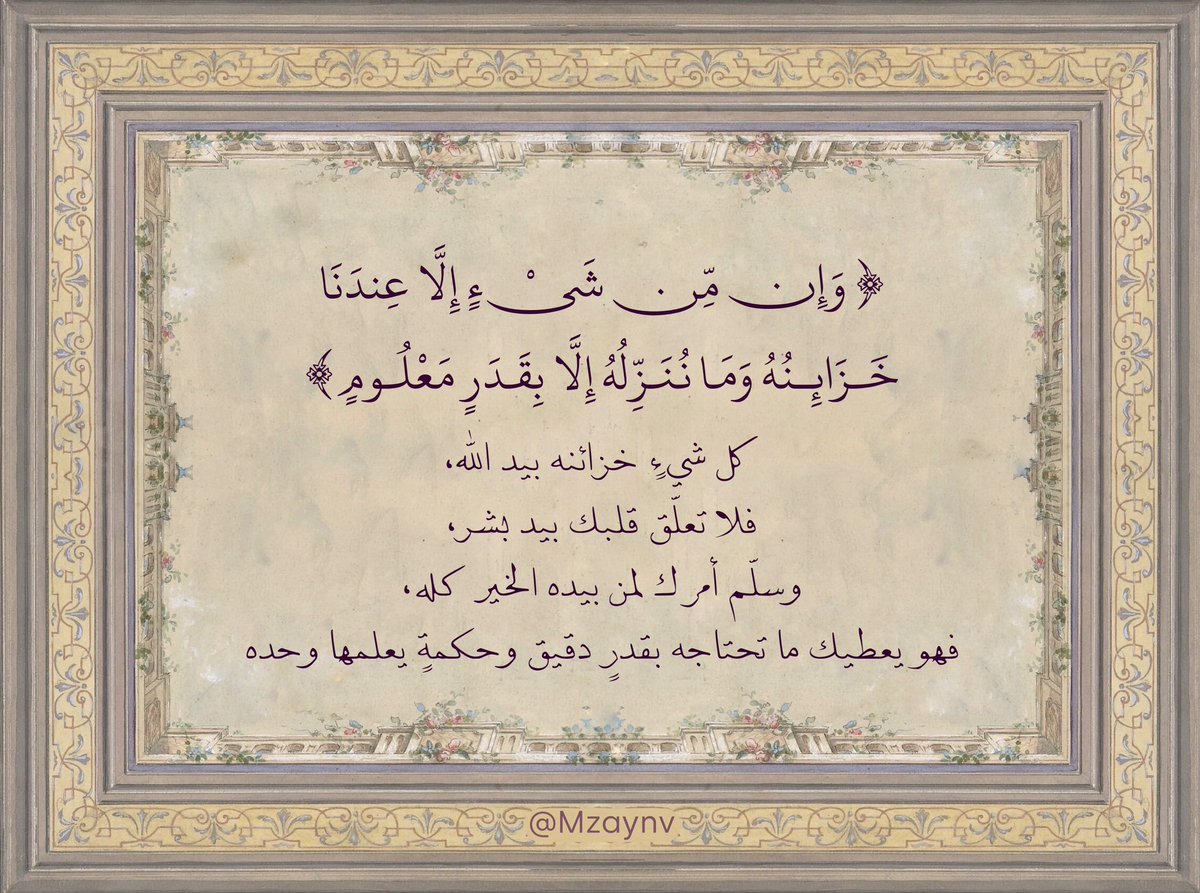 ﴿وَإِن مِّن شَىْءٍ إِلَّا عِندَنَا
خَزَائِنُهُ وَمَا نُنَزِّلُهُ إِلَّا بِقَدَرٍ مَعْلُومٍ﴾
كل شيءٍ خزائنه بيد الله،
فلا تعلّق قلبك بيد بشر،
وسلّم أمرك لمن بيده الخير كله،
فهو يعطيك ما تحتاجه بقدرٍ دقيق وحكمةٍ يعلمها وحده
@Mzaynv